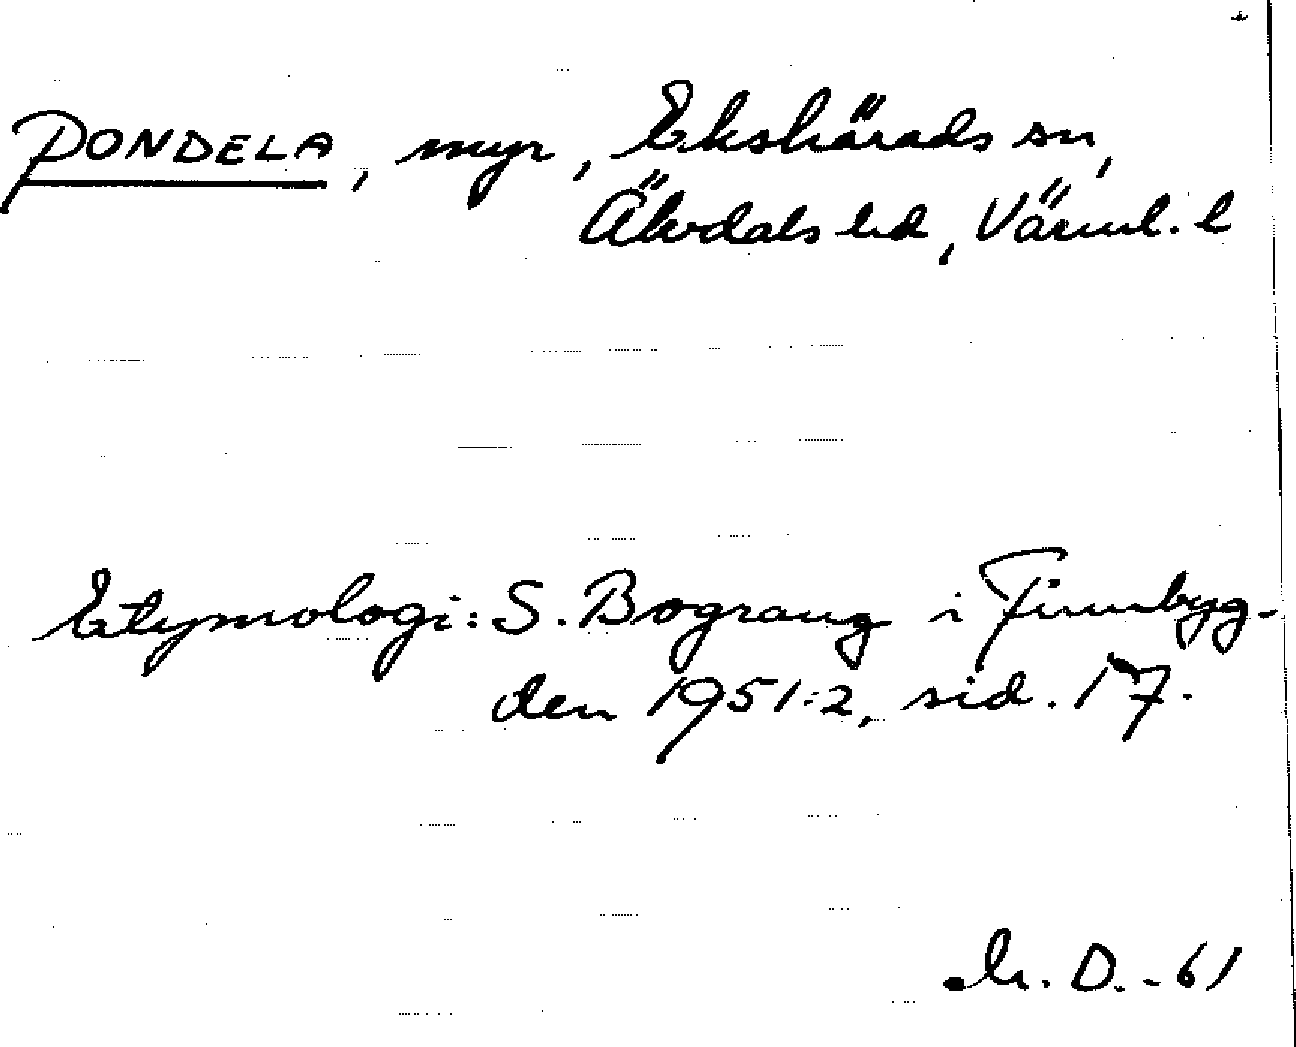 PONDELA, myr, Ekshärads sn,
Älvdals hd, Värml. l
Etymologi: S. Bograng i Finnbyg-
den 1951:2, sid. 17.
D. -61